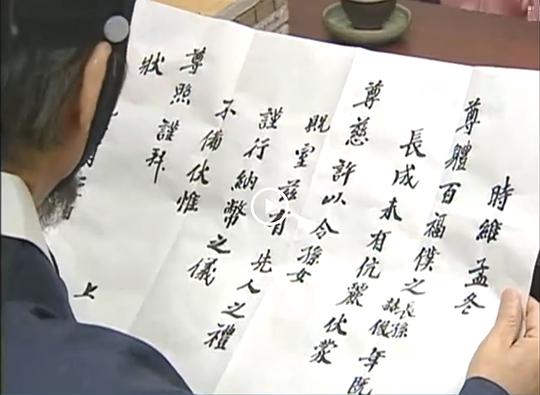 時維孟冬
尊體百福僕之長孫
年既
長成未有伉儷伏蒙
尊慈許以令孫女
貺室玆有先人之禮
謹行納幣之儀
不備伏惟
尊照謹拜
狀
上